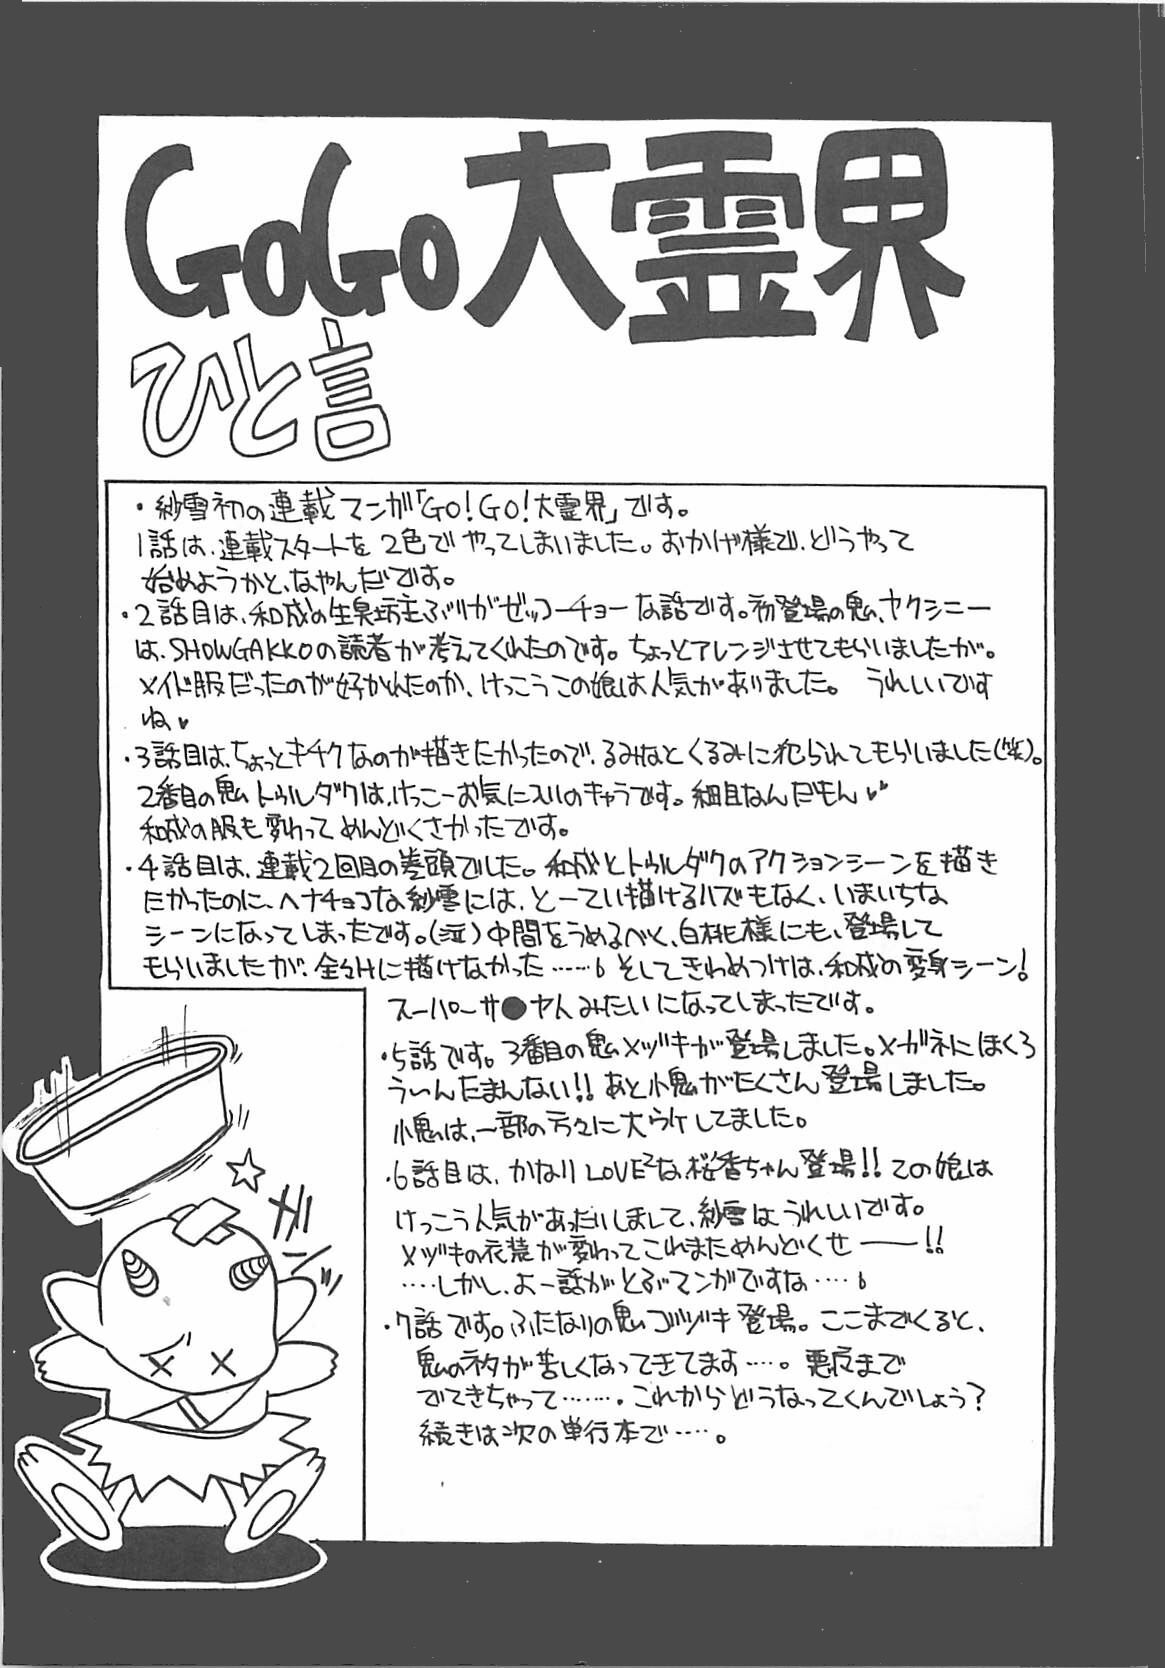 GoGo大霊界
ひと言
・紗雪初の連載マンガ「GO!GO!大霊界」です。
1話は、連載スタートを2色でやってしまいました。おかげ様で、どうやって
始めようかと、なやんだです。
・2話目は、和成の生臭坊主ぶりがゼッコーチョーな話です。初登場の鬼、ヤクシニー
は、SHOWGAKKOの読者が考えてくれたのです。ちょっとアレンジさせてもらいましたが。
メイド服だったのが好かれたのか、けっこうこの娘は人気がありました。 うれしいです
ね♥
・3話目は、ちょっとキチクなのが描きたかったので、るみなとくるみに犯られてもらいました(笑)。
2番目の鬼トゥルダクは、けっこーお気に入いのキャラです。細目なんだもん♥♥
和成の服も変わってめんどくさかったです。
・4話目は、連載2回目の巻頭でした。和成とトゥルダクのアクションシーンを描き
たかったのに、ヘナチョコな紗雪には、とーてい描けるハズもなく、いまいちな
シーンになってしまったです。(泣)中間をうめるべく、白桃様にも、登場して
もらいましたが、全々Hに描けなかった……。そしてきわめつけは、和成の変身シーン!
スーパーサ●ヤ人みたいになってしまったです。
・5話です。3番目の鬼メヅキが登場しました。メガネにほくろ
う～んたまんない!!あと小鬼がたくさん登場しました。
小鬼は、一部の方々に大ウケしてました。
・6話目は、かなりLOVE²な、桜香ちゃん登場!!この娘は
けっこう人気があったりしまして、紗雪はうれしいです。
メヅキの衣装が変わってこれまためんどくせ――!!
……しかし、よー話がとぶマンガですな……。
・7話です。ふたなりの鬼ゴヅキ登場。ここまでくると、
鬼のネタが苦しくなってきてます……。悪役まで
でてきちゃって……。これからどうなってくんでしょう?
続きは次の単行本で……。
ギーンッ